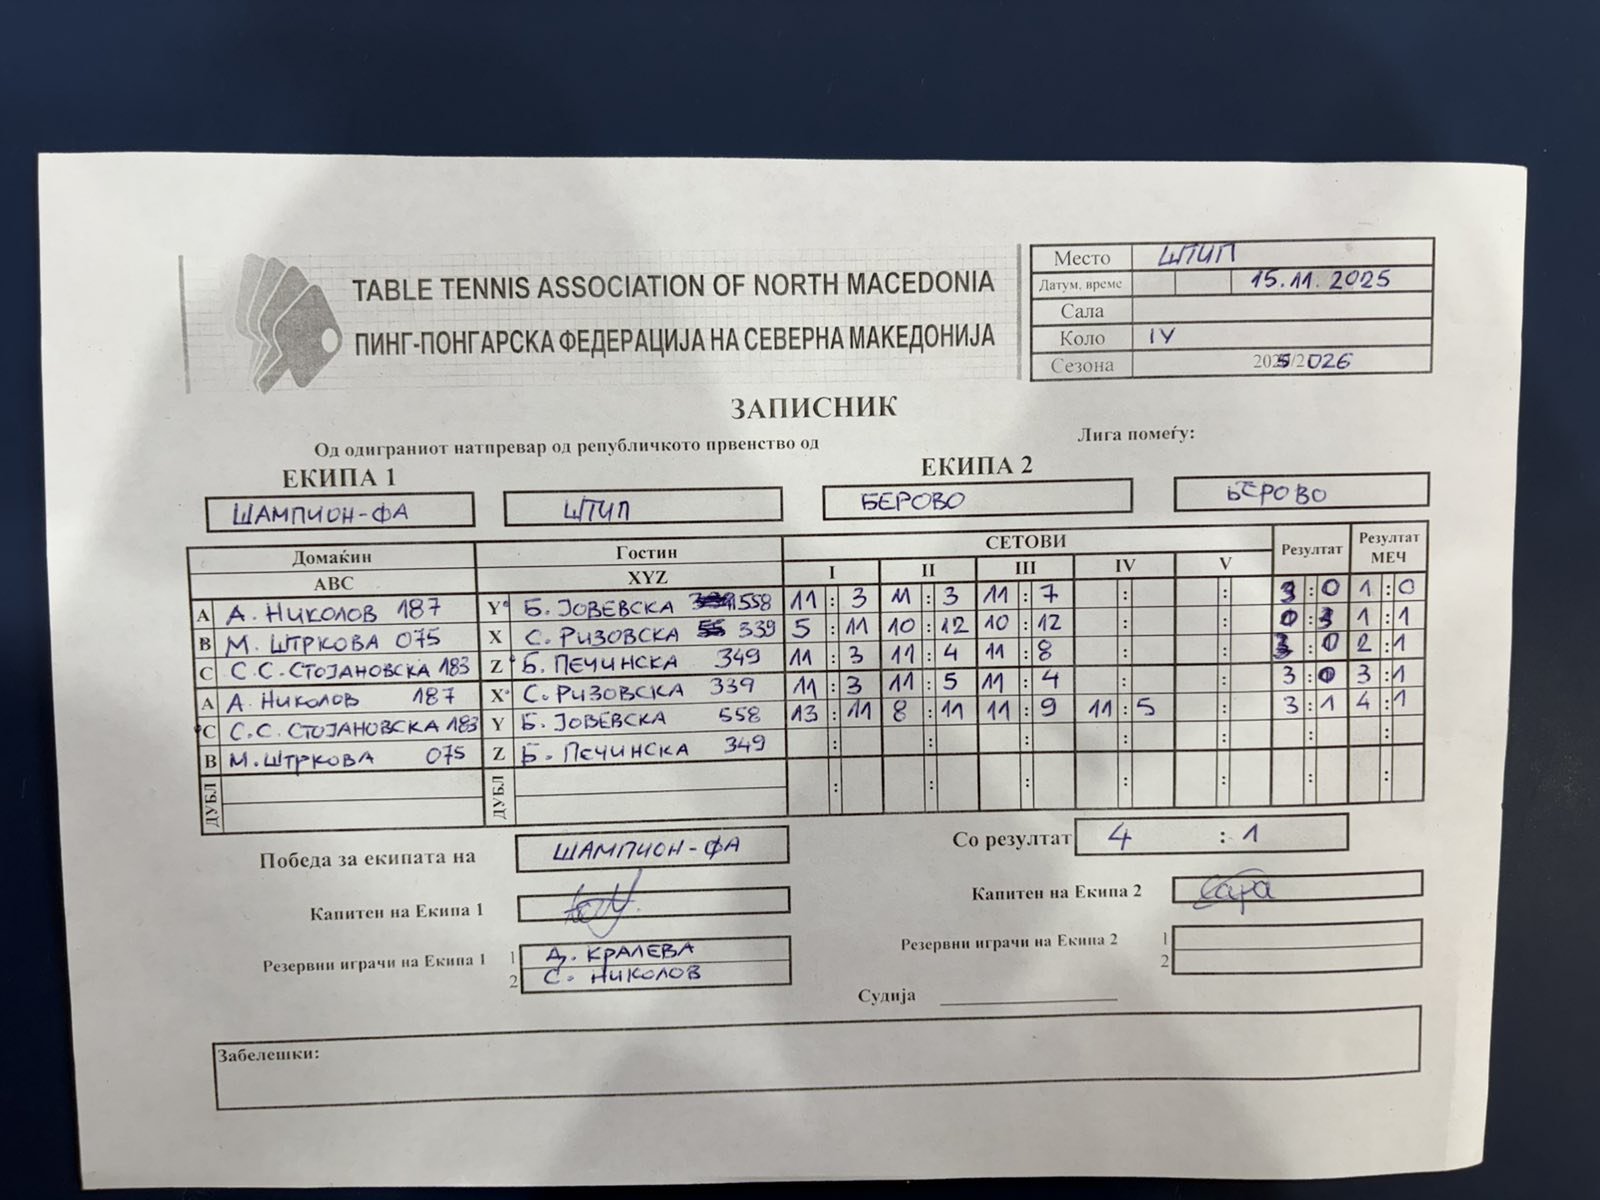 TABLE TENNIS ASSOCIATION OF NORTH MACEDONIA
ПИНГ-ПОНГАРСКА ФЕДЕРАЦИЈА НА СЕВЕРНА МАКЕДОНИЈА
Место ШТИП
Датум, време 15.11.2025
Сала
Коло IV
Сезона 2025/2026
ЗАПИСНИК
Од одиграниот натпревар од републичкото првенство од Лига помеѓу:
ЕКИПА 1 ЕКИПА 2
ШАМПИОН-ФА ШТИП БЕРОВО БЕРОВО
Домаќин Гостин СЕТОВИ Резултат Резултат МЕЧ
ABC XYZ I II III IV V
A А. НИКОЛОВ 187 Y Б. ЈОВЕВСКА 558 11 : 3 11 : 3 11 : 7 : : 3 : 0 1 : 0
B М. ШТРКОВА 075 X С. РИЗОВСКА 339 5 : 11 10 : 12 10 : 12 : : 0 : 3 1 : 1
C С.С. СТОЈАНОВСКА 183 Z Б. ПЕЧИНСКА 349 11 : 3 11 : 4 11 : 8 : : 3 : 0 2 : 1
A А. НИКОЛОВ 187 X С. РИЗОВСКА 339 11 : 3 11 : 5 11 : 4 : : 3 : 0 3 : 1
C С.С. СТОЈАНОВСКА 183 Y Б. ЈОВЕВСКА 558 13 : 11 8 : 11 11 : 9 11 : 5 : 3 : 1 4 : 1
B М. ШТРКОВА 075 Z Б. ПЕЧИНСКА 349 : : : : : : :
ДУБЛ ДУБЛ : : : : : : :
Победа за екипата на ШАМПИОН-ФА Со резултат 4 : 1
Капитен на Екипа 1 Капитен на Екипа 2 Сара
Резервни играчи на Екипа 1 1 Д. КРАЛЕВА Резервни играчи на Екипа 2 1
2 С. НИКОЛОВ 2
Судија
Забелешки: